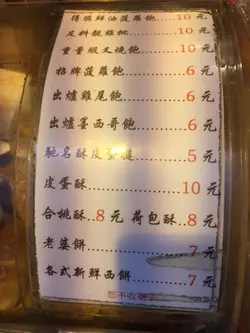 得獎鮮油菠蘿飽......10 元
足料靚雞批......10 元
重量級叉燒飽......10 元
招牌菠蘿飽......6 元
出爐雞尾飽......6 元
出爐墨西哥飽......6 元
馳名酥皮蛋撻......5 元
皮蛋酥......10 元
合桃酥..8 元 荷包酥..9 元
老婆餅......7 元
各式新鮮西餅......7 元
恕不收